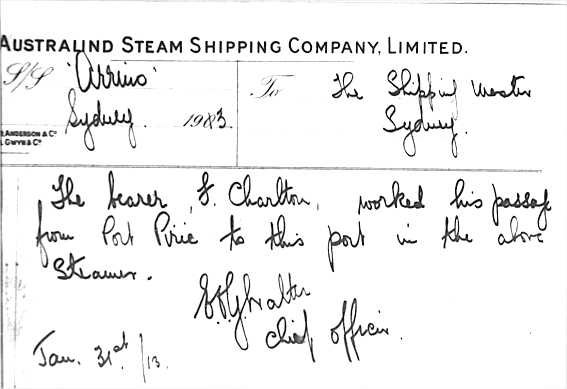 AUSTRALIND STEAM SHIPPING COMPANY, LIMITED.
S/S 'Arrino' To The Shipping Master
Sydney. 1913. Sydney.
ANDERSON & Co
GWYN & Co
The bearer, F. Charlton, worked his passage
from Port Pirie to this port in the above
Steamer.
Chief Officer.
Jan. 31st/13.